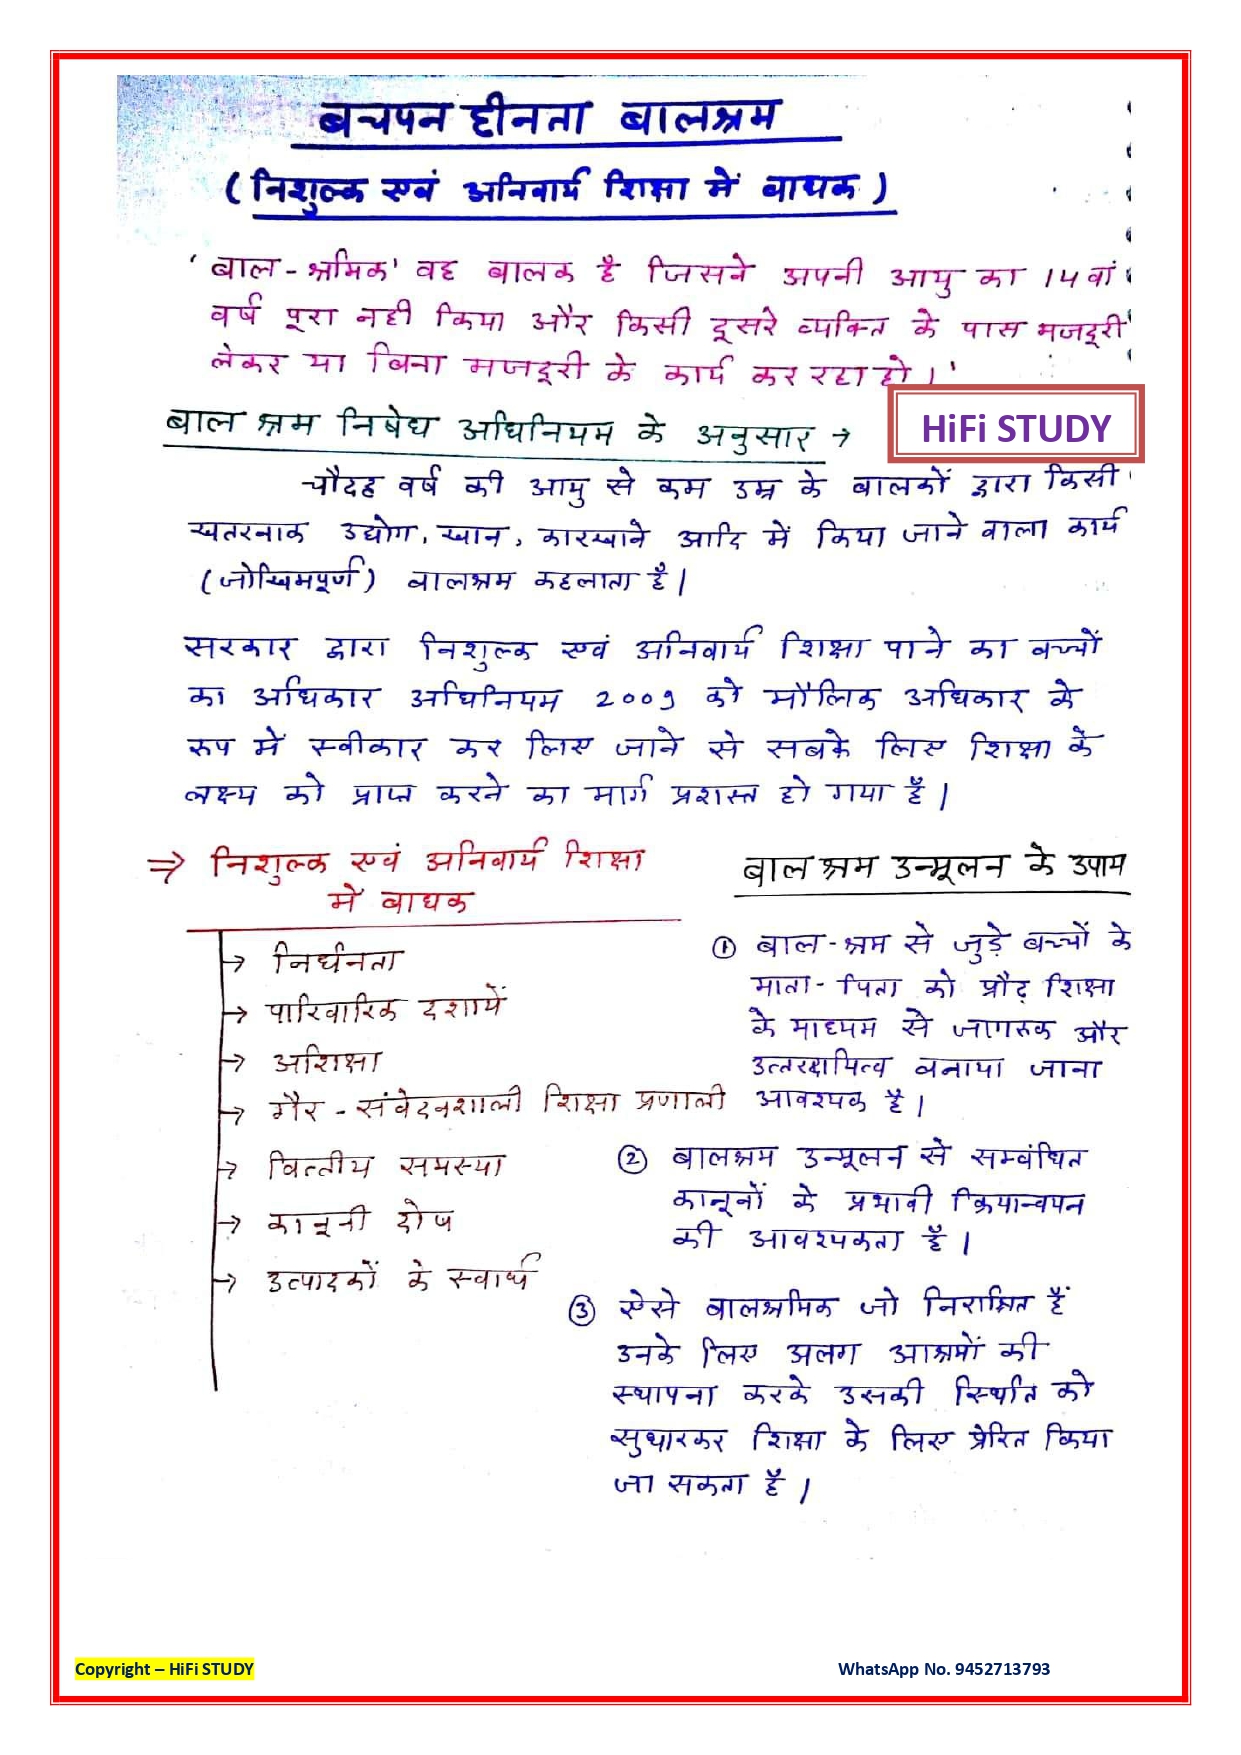 बचपन हीनता बालश्रम
(निशुल्क एवं अनिवार्य शिक्षा में बाधक)
'बाल-श्रमिक' वह बालक है जिसने अपनी आयु का 14वां
वर्ष पूरा नही किया और किसी दूसरे व्यक्ति के पास मजदूरी
लेकर या बिना मजदूरी के कार्य कर रहा हो।'
HiFi STUDY
बाल श्रम निषेध अधिनियम के अनुसार →
चौदह वर्ष की आयु से कम उम्र के बालकों द्वारा किसी
खतरनाक उद्योग, खान, कारखाने आदि में किया जाने वाला कार्य
(जोखिमपूर्ण) बालश्रम कहलाता है।
सरकार द्वारा निशुल्क एवं अनिवार्य शिक्षा पाने का बच्चों
का अधिकार अधिनियम 2009 को मौलिक अधिकार के
रूप में स्वीकार कर लिए जाने से सबके लिए शिक्षा के
लक्ष्य को प्राप्त करने का मार्ग प्रशस्त हो गया है।
⇒ निशुल्क एवं अनिवार्य शिक्षा
में बाधक
→ निर्धनता
→ पारिवारिक दशायें
→ अशिक्षा
→ गैर-संवेदनशाली शिक्षा प्रणाली
→ वित्तीय समस्या
→ कानूनी दोष
→ उत्पादकों के स्वार्थ
बाल श्रम उन्मूलन के उपाय
① बाल-श्रम से जुड़े बच्चों के
माता-पिता को प्रौढ़ शिक्षा
के माध्यम से जागरूक और
उत्तरदायित्व बनाया जाना
आवश्यक है।
② बालश्रम उन्मूलन से सम्बंधित
कानूनों के प्रभावी क्रियान्वयन
की आवश्यकता है।
③ ऐसे बालश्रमिक जो निराश्रित हैं
उनके लिए अलग आश्रमों की
स्थापना करके उसकी स्थिति को
सुधारकर शिक्षा के लिए प्रेरित किया
जा सकता है।
Copyright – HiFi STUDY
WhatsApp No. 9452713793